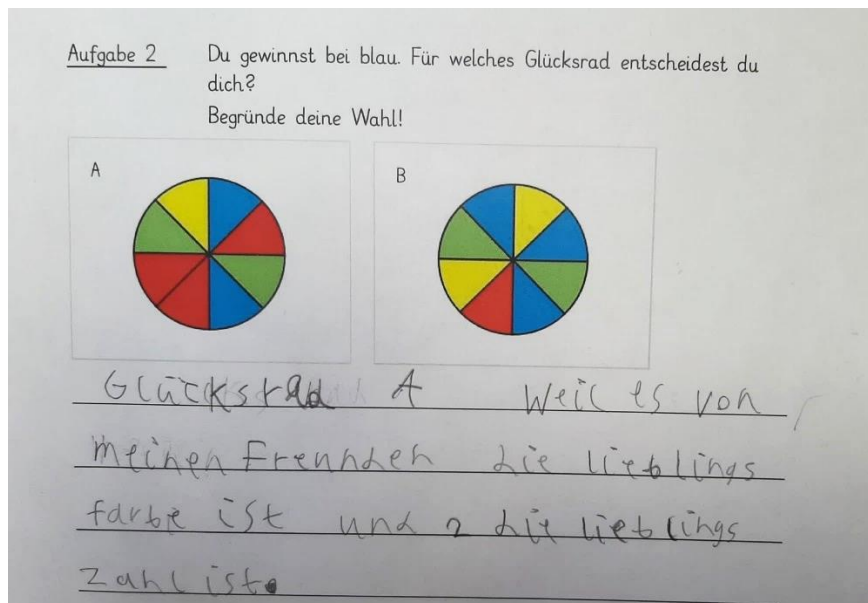 Aufgabe 2 Du gewinnst bei blau. Für welches Glücksrad entscheidest du
dich?
Begründe deine Wahl!
A B
Glücksrad A Weil es von
meinen Freunnden die lieblings
farbe ist und 2 die lieblings
Zahl ist.